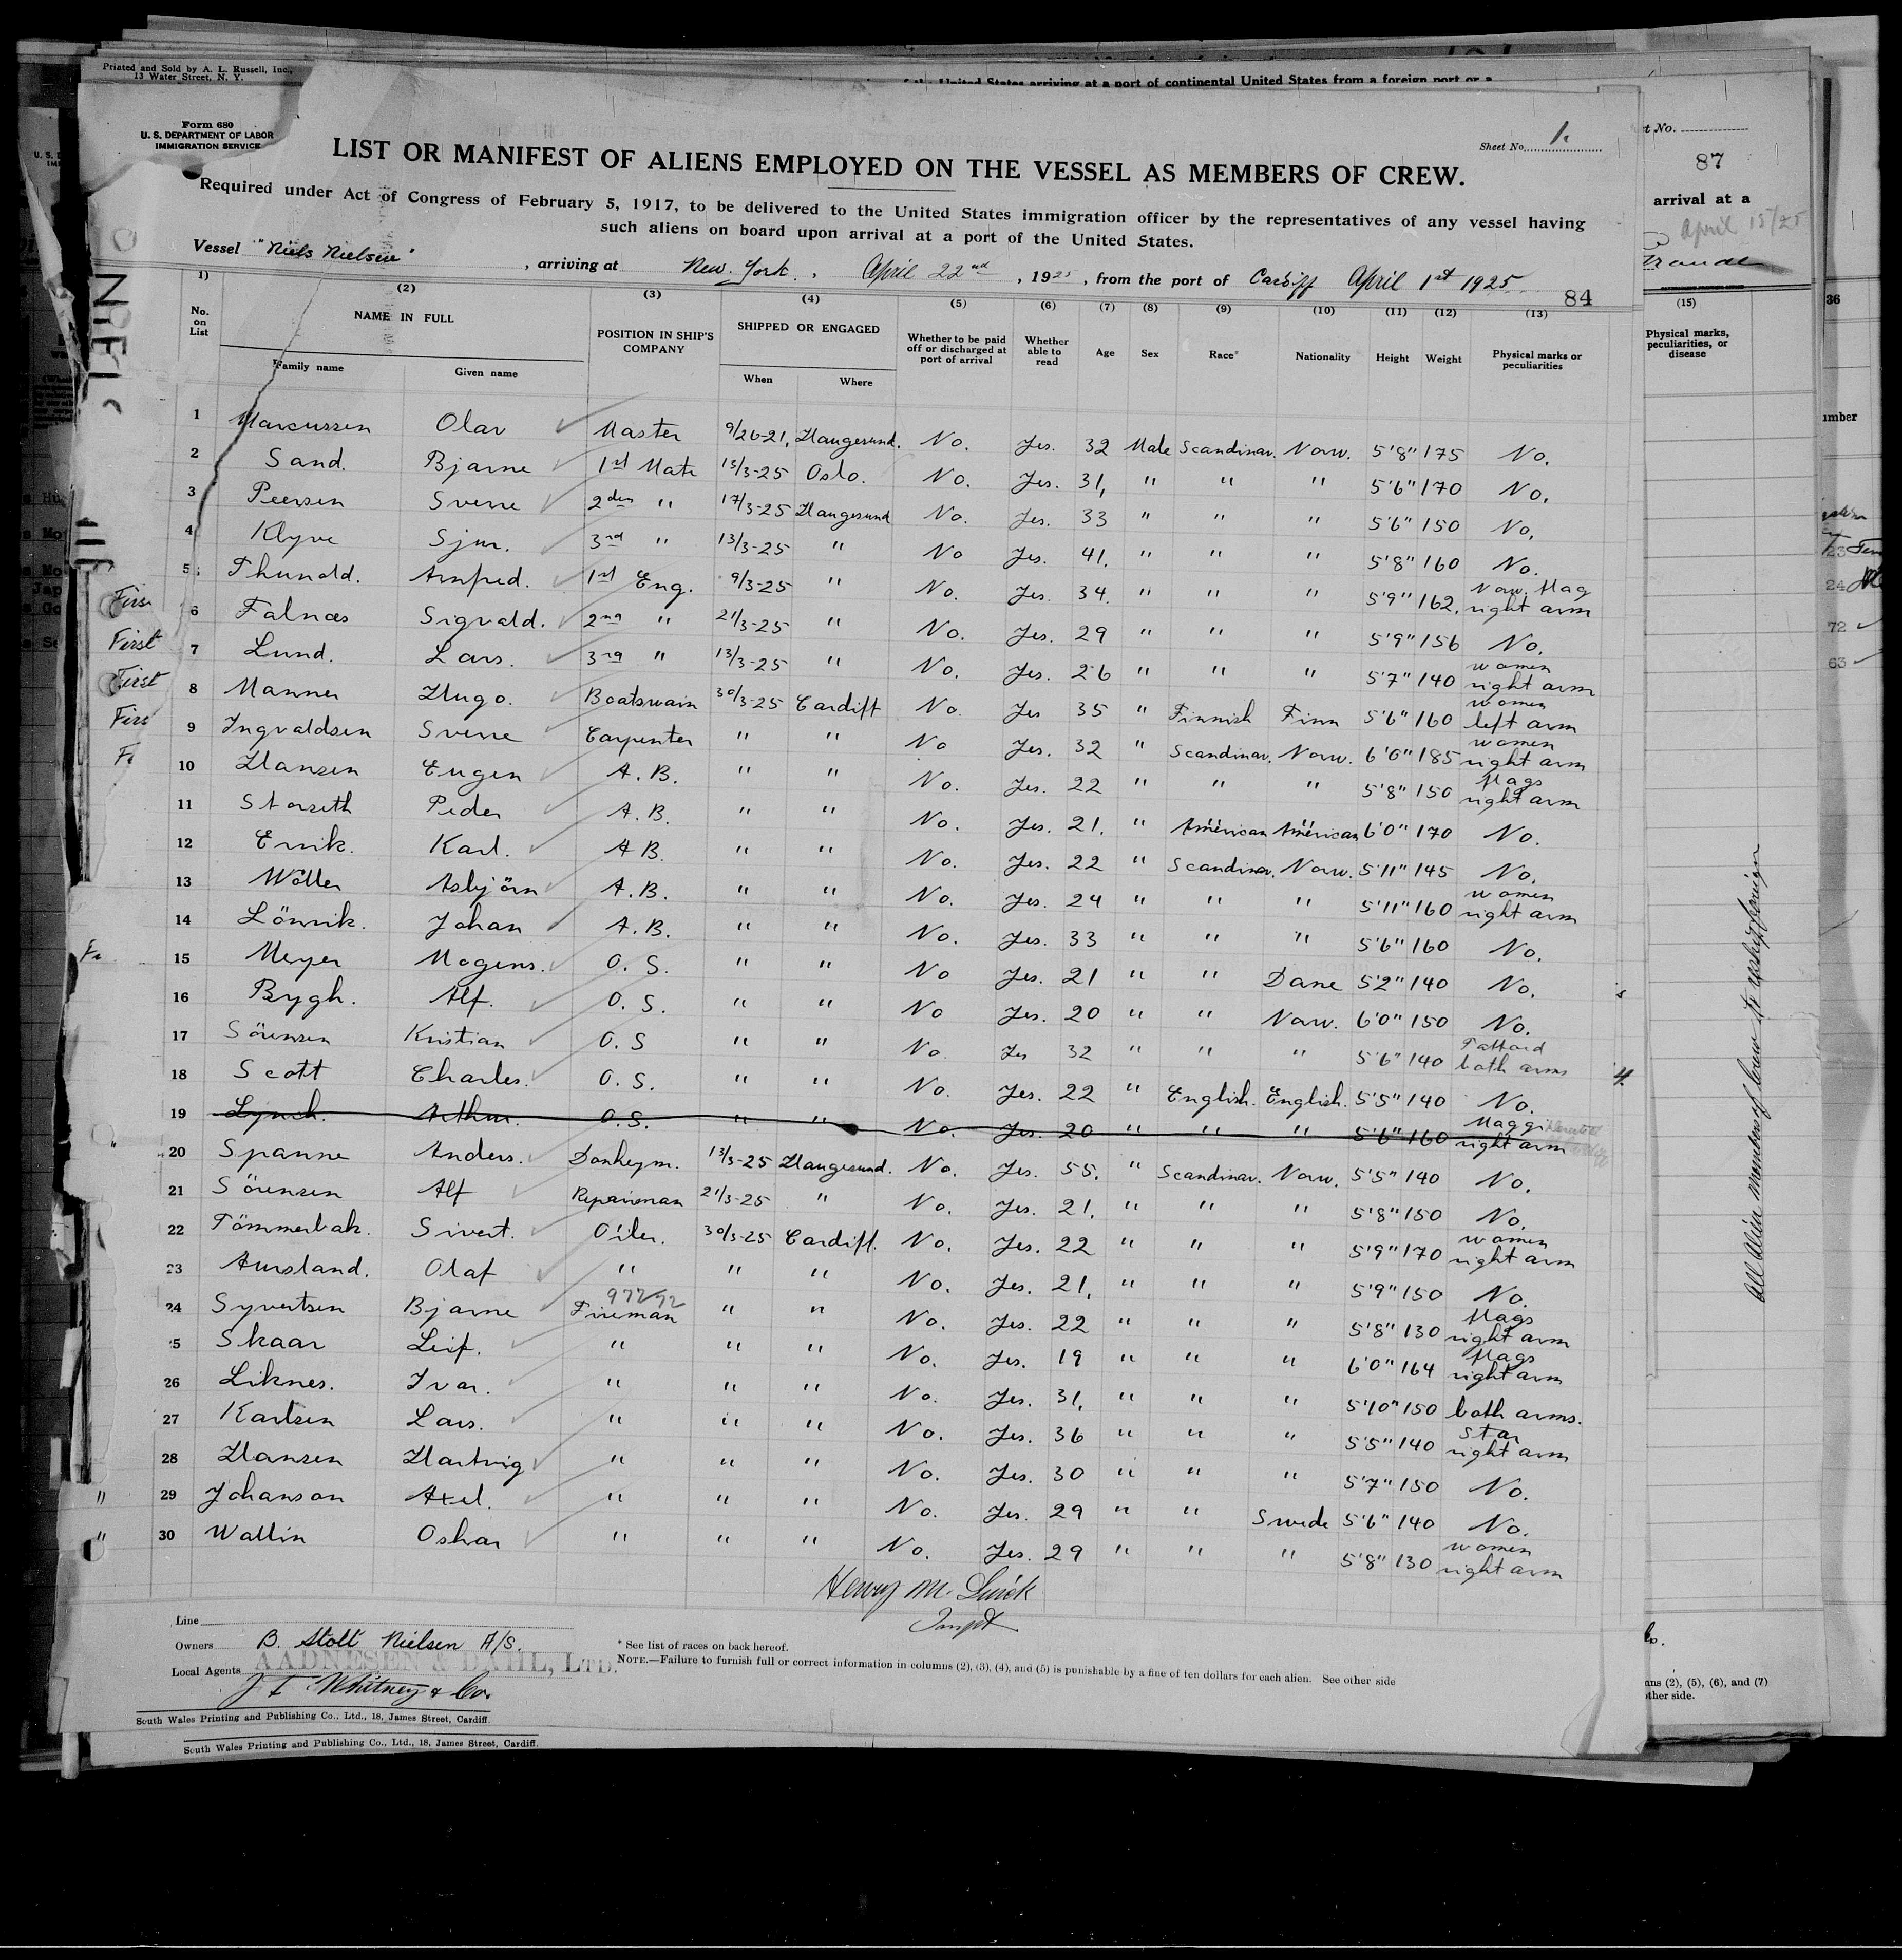 Printed and Sold by A. L. Russell, Inc.,
13 Water Street, N. Y.
United States arriving at a port of continental United States from a foreign port or a
Form 680
U. S. DEPARTMENT OF LABOR
IMMIGRATION SERVICE
Sheet No. 1.
LIST OR MANIFEST OF ALIENS EMPLOYED ON THE VESSEL AS MEMBERS OF CREW.
Required under Act of Congress of February 5, 1917, to be delivered to the United States immigration officer by the representatives of any vessel having
such aliens on board upon arrival at a port of the United States.
Vessel "Niels Nielsen", arriving at New York, April 22nd, 1925, from the port of Cardiff April 1st 1925
84
1) (2) (3) (4) (5) (6) (7) (8) (9) (10) (11) (12) (13)
No. on List NAME IN FULL POSITION IN SHIP'S COMPANY SHIPPED OR ENGAGED Whether to be paid off or discharged at port of arrival Whether able to read Age Sex Race* Nationality Height Weight Physical marks or peculiarities
Family name Given name When Where
1 Marcussen Olav Master 9/26-21, Haugesund. No. Yes. 32 Male Scandinav. Norw. 5'8" 175 No.
2 Sand. Bjarne 1st Mate 13/3-25 Oslo. No. Yes. 31, " " " 5'6" 170 No.
3 Peersen Sverre 2den " 17/3-25 Haugesund No. Yes. 33 " " " 5'6" 150 No.
4 Klyve Sjur. 3rd " 13/3-25 " No Yes. 41. " " " 5'8" 160 No.
5 Thunold. Arnfred. 1st Eng. 9/3-25 " No. Yes. 34. " " " 5'9" 162. Norw. flag right arm
6 Falnæs Sigvald. 2nd " 21/3-25 " No. Yes. 29 " " " 5'9" 156 No.
7 Lund. Lars. 3rd " 13/3-25 " No. Yes. 26 " " " 5'7" 140 women right arm
8 Manner Hugo. Boatswain 30/3-25 Cardiff No. Yes 35 " Finnish Finn 5'6" 160 women left arm
9 Ingvaldsen Sverre Carpenter " " No Yes. 32 " Scandinav. Norw. 6'0" 185 women right arm
10 Hansen Eugen A. B. " " No. Yes. 22 " " " 5'8" 150 flags right arm
11 Storseth Peder A. B. " " No. Yes. 21. " American American 6'0" 170 No.
12 Ervik. Karl. A B. " " No. Yes. 22 " Scandinav. Norw. 5'11" 145 No.
13 Möller Asbjörn A. B. " " No. Yes. 24 " " " 5'11" 160 women right arm
14 Lönvik. Johan A. B. " " No. Yes. 33 " " " 5'6" 160 No.
15 Meyer Mogens. O. S. " " No Yes. 21 " " Dane 5'2" 140 No.
16 Bygh. Alf. O. S. " " No Yes. 20 " " Norw. 6'0" 150 No.
17 Sörensen Kristian O. S " " No. Yes 32 " " " 5'6" 140 Tattoed both arms
18 Scott Charles. O. S. " " No. Yes. 22 " English. English. 5'5" 140 No.
19 Lynch. Arthur. O. S. " " No. Yes. 20 " " " 5'6" 160 Maggi right arm
20 Spanne Anders. Donkeym. 13/3-25 Haugesund. No. Yes. 55. " Scandinav. Norw. 5'5" 140 No.
21 Sörensen Alf Repairman 21/3-25 " No. Yes. 21. " " " 5'8" 150 No.
22 Tömmerbak. Sivert. Oiler. 30/3-25 Cardiff. No. Yes. 22 " " " 5'9" 170 women right arm
23 Aursland. Olaf " " " No. Yes. 21, " " " 5'9" 150 No.
97292
24 Syvertsen Bjarne Fireman " " No. Yes. 22 " " " 5'8" 130 flags right arm
25 Skaar Leif. " " " No. Yes. 19 " " " 6'0" 164 flags right arm
26 Liknes. Ivar. " " " No. Yes. 31, " " " 5'10" 150 both arms.
27 Karlsen Lars. " " " No. Yes. 36 " " " 5'5" 140 Star right arm
28 Hansen Hartvig " " " No. Yes. 30 " " " 5'7" 150 No.
29 Johanson Axel. " " " No. Yes. 29 " " Swede 5'6" 140 No.
30 Wallin Oskar " " " No. Yes. 29 " " " 5'8" 130 women right arm
First
First
Henry M.
Line
Owners B. Stolt Nielsen A/S.
Local Agents AADNESEN & DAHL, LTD.
J F Whitney & Co.
* See list of races on back hereof.
NOTE.—Failure to furnish full or correct information in columns (2), (3), (4), and (5) is punishable by a fine of ten dollars for each alien. See other side
South Wales Printing and Publishing Co., Ltd., 18, James Street, Cardiff.
South Wales Printing and Publishing Co., Ltd., 18, James Street, Cardiff.
87
arrival at a
April 15/25
(15)
Physical marks, peculiarities, or disease
All alien members of crew to reship foreign
(2), (5), (6), and (7)
other side.
36
72
63